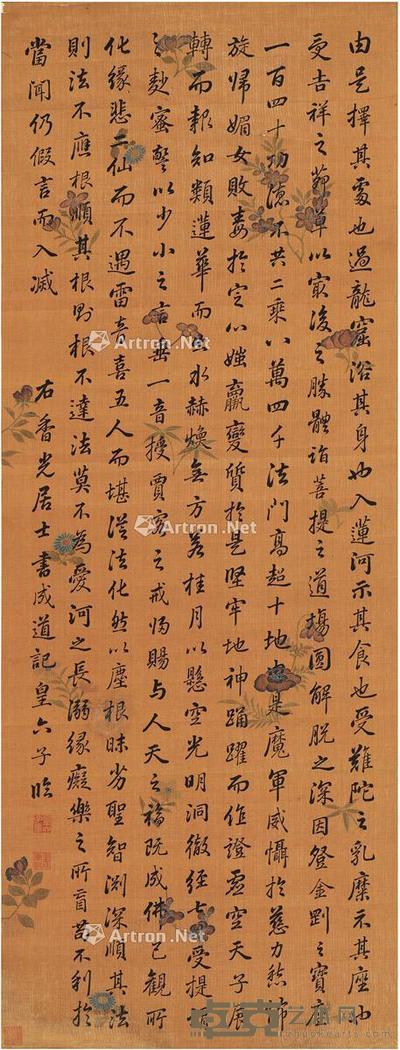 由是擇其處也過龍窟浴其身也入蓮河示其食也受難陀之乳糜示其座也
受吉祥之茆草以最後之勝體詣菩提之道場圓解脫之深因登金剛之寶座
一百四十功德不共二乘八萬四千法門高超十地由是魔軍威懾於慈力愁怖
旋歸媚女敗毒於定心媸羸變質於是堅牢地神踊躍而作證虛空天子展
轉而報知類蓮華而出水赫煥無方若桂月以懸空光明洞徹經七日受提謂
之麨蜜警以少小之言垂一音授賈客之戒歸賜与人天之福既成佛已觀所
化緣悲二仙而不遇雷音喜五人而堪從法化然以塵根昧劣聖智淵深順其法
則法不應根順其根則根不達法莫不為愛河之長溺緣癡樂之所盲苦不利於
當聞仍假言而入滅
右香光居士書成道記皇六子臨
Artron.Net
Artron.Net
Artron.Net
Artron.Net
Artron.Net
Artron.Net